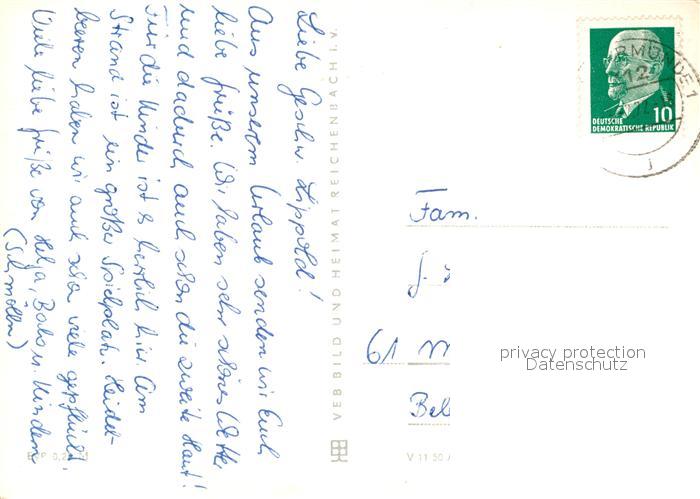 Liebe Geschw. Lippold!
Aus unserem Urlaub senden wir Euch
liebe Grüße. Wir haben sehr schönes Wetter
und dadurch auch schon die zweite Haut!
Für die Kinder ist es herrlich hier. Am
Strand ist ein großer Spielplatz. Heidel-
beeren haben wir auch schon viele gepflückt.
Viele liebe Grüße von Helga, u. Kindern
(Schmölln)
VEB BILD UND HEIMAT REICHENBACH I. V.
10
DEUTSCHE
DEMOKRATISCHE REPUBLIK
RMÜNDE 1
Fam.
61 M
Bel
privacy protection
Datenschutz
V 11 50